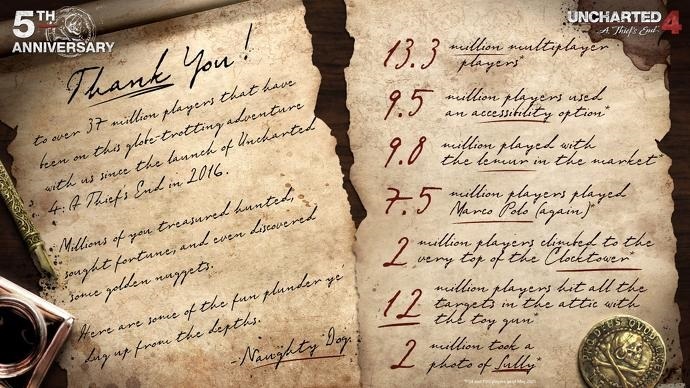 5TH
ANNIVERSARY
Thank You!
to over 37 million players that have
been on this globe-trotting adventure
with us since the launch of Uncharted
4: A Thief's End in 2016.
Millions of you treasured hunted,
sought fortune, and even discovered
some golden nuggets.
Here are some of the fun plunder ye'
dug up from the depths.
-Naughty Dog
UNCHARTED 4
A Thief's End
13.3 million multiplayer
players*
9.5 million players used
an accessibility option*
9.8 million played with
the lemur in the market*
7.5 million players played
Marco Polo (again)*
2 million players climbed to the
very top of the Clocktower*
12 million players hit all the
targets in the attic with
the toy gun*
2 million took a
photo of Sully*